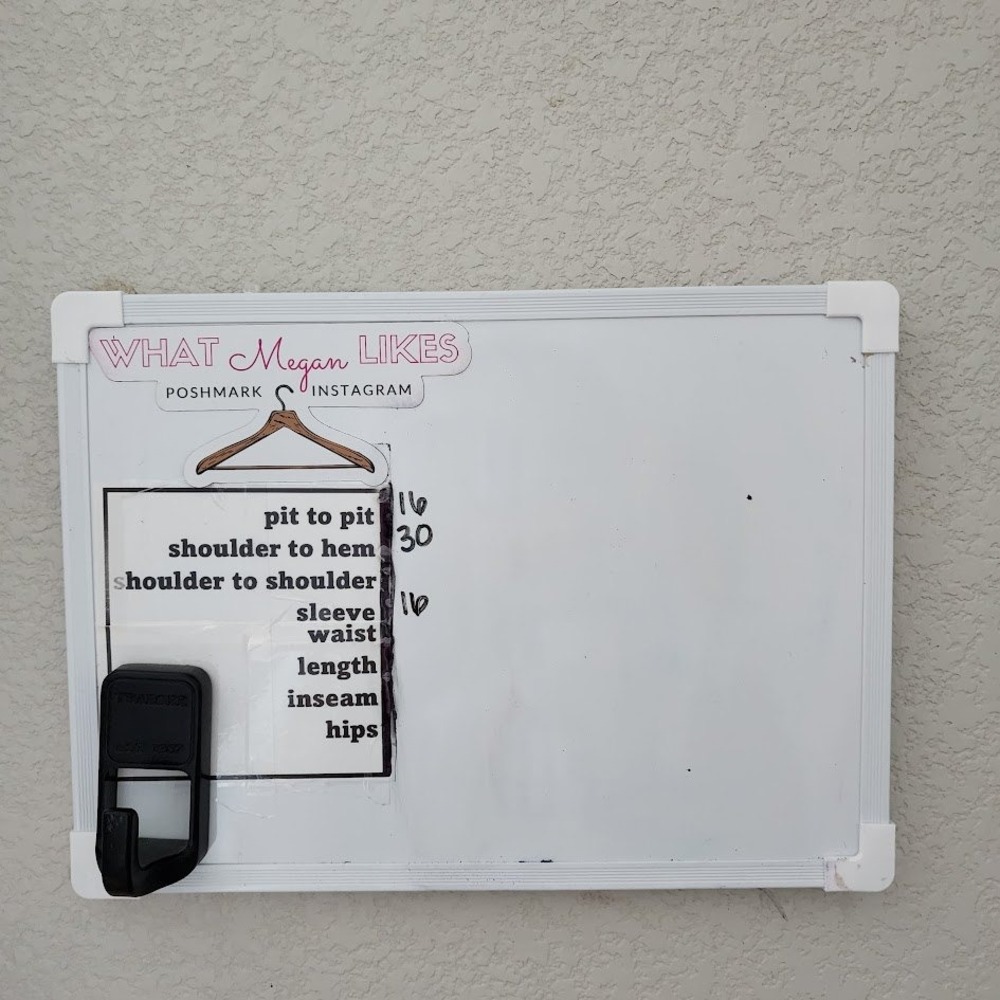 WHAT Megan LIKES
POSHMARK INSTAGRAM
pit to pit 16
shoulder to hem 30
shoulder to shoulder
sleeve 16
waist
length
inseam
hips